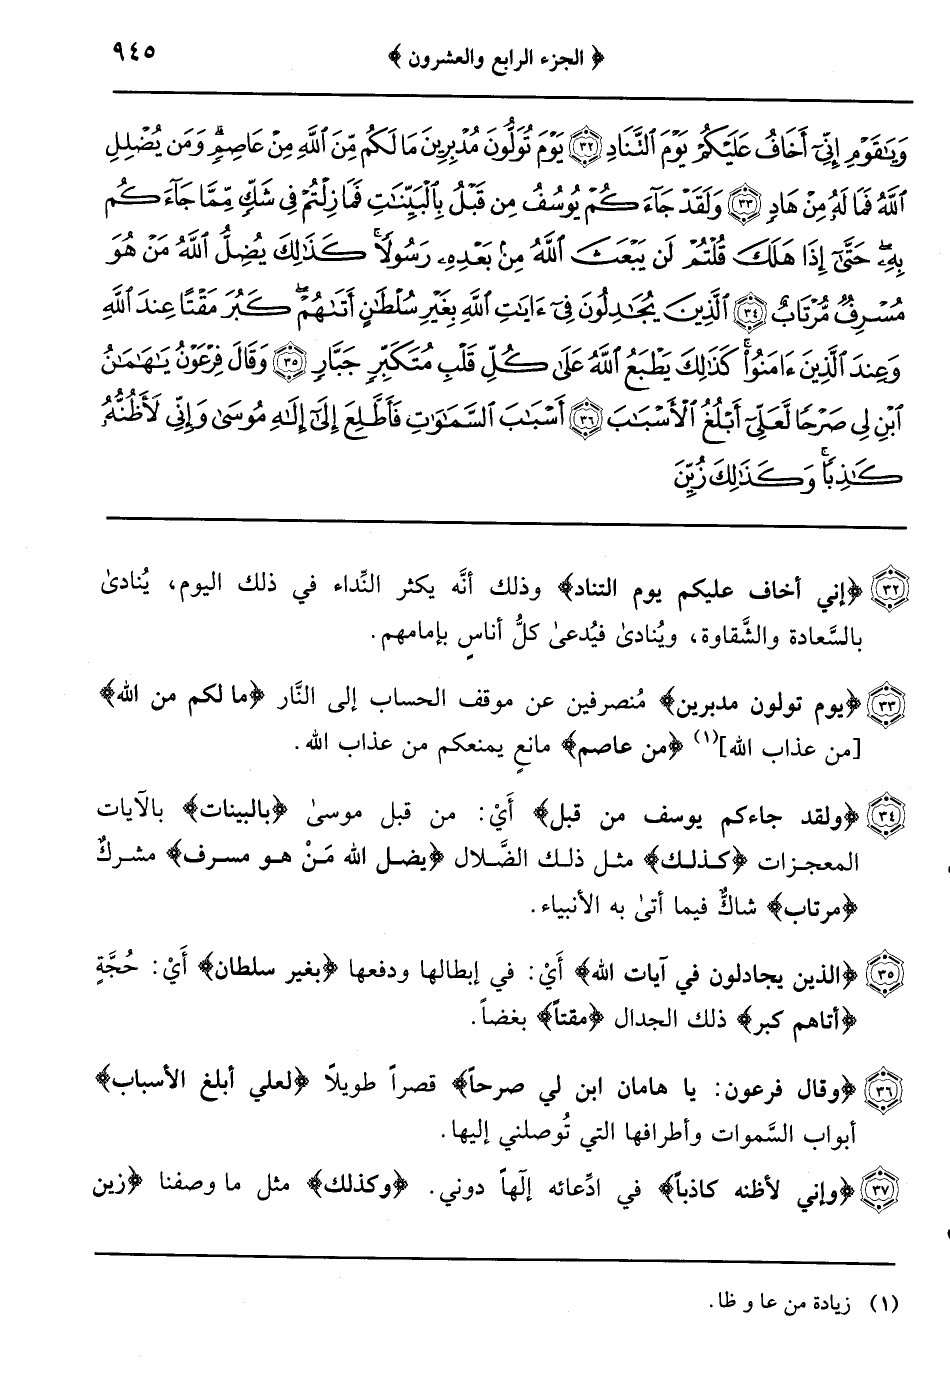 ﴿ الجزء الرابع والعشرون ﴾ ٩٤٥
وَيَٰقَوْمِ إِنِّىٓ أَخَافُ عَلَيْكُمْ يَوْمَ ٱلتَّنَادِ ٣٢ يَوْمَ تُوَلُّونَ مُدْبِرِينَ مَا لَكُم مِّنَ ٱللَّهِ مِنْ عَاصِمٍۗ وَمَن يُضْلِلِ
ٱللَّهُ فَمَا لَهُۥ مِنْ هَادٍ ٣٣ وَلَقَدْ جَآءَكُمْ يُوسُفُ مِن قَبْلُ بِٱلْبَيِّنَٰتِ فَمَا زِلْتُمْ فِى شَكٍّ مِّمَّا جَآءَكُم
بِهِۦۖ حَتَّىٰٓ إِذَا هَلَكَ قُلْتُمْ لَن يَبْعَثَ ٱللَّهُ مِنۢ بَعْدِهِۦ رَسُولًاۚ كَذَٰلِكَ يُضِلُّ ٱللَّهُ مَنْ هُوَ
مُسْرِفٌ مُّرْتَابٌ ٣٤ ٱلَّذِينَ يُجَٰدِلُونَ فِىٓ ءَايَٰتِ ٱللَّهِ بِغَيْرِ سُلْطَٰنٍ أَتَىٰهُمْۖ كَبُرَ مَقْتًا عِندَ ٱللَّهِ
وَعِندَ ٱلَّذِينَ ءَامَنُوا۟ۚ كَذَٰلِكَ يَطْبَعُ ٱللَّهُ عَلَىٰ كُلِّ قَلْبِ مُتَكَبِّرٍ جَبَّارٍ ٣٥ وَقَالَ فِرْعَوْنُ يَٰهَٰمَٰنُ
ٱبْنِ لِى صَرْحًا لَّعَلِّىٓ أَبْلُغُ ٱلْأَسْبَٰبَ ٣٦ أَسْبَٰبَ ٱلسَّمَٰوَٰتِ فَأَطَّلِعَ إِلَىٰٓ إِلَٰهِ مُوسَىٰ وَإِنِّى لَأَظُنُّهُۥ
كَٰذِبًاۚ وَكَذَٰلِكَ زُيِّنَ
٣٢ ﴿إني أخاف عليكم يوم التناد﴾ وذلك أنَّه يكثر النِّداء في ذلك اليوم، يُنادىٰ
بالسَّعادة والشَّقاوة، ويُنادىٰ فيُدعىٰ كلُّ أناسٍ بإمامهم.
٣٣ ﴿يوم تولون مدبرين﴾ مُنصرفين عن موقف الحساب إلى النَّار ﴿ما لكم من الله﴾
[من عذاب الله](١) ﴿من عاصم﴾ مانعٍ يمنعكم من عذاب الله.
٣٤ ﴿ولقد جاءكم يوسف من قبل﴾ أَيْ: من قبل موسىٰ ﴿بالبينات﴾ بالآيات
المعجزات ﴿كذلك﴾ مثل ذلك الضَّلال ﴿يضل الله مَنْ هو مسرف﴾ مشركٌ
﴿مرتاب﴾ شاكٌّ فيما أتىٰ به الأنبياء.
٣٥ ﴿الذين يجادلون في آيات الله﴾ أَيْ: في إبطالها ودفعها ﴿بغير سلطان﴾ أَيْ: حُجَّةٍ
﴿أتاهم كبر﴾ ذلك الجدال ﴿مقتاً﴾ بغضاً.
٣٦ ﴿وقال فرعون: يا هامان ابن لي صرحاً﴾ قصراً طويلاً ﴿لعلي أبلغ الأسباب﴾
أبواب السَّموات وأطرافها التي تُوصلني إليها.
٣٧ ﴿وإني لأظنه كاذباً﴾ في ادِّعائه إلٰهاً دوني. ﴿وكذلك﴾ مثل ما وصفنا ﴿زين
(١) زيادة من عا و ظا.